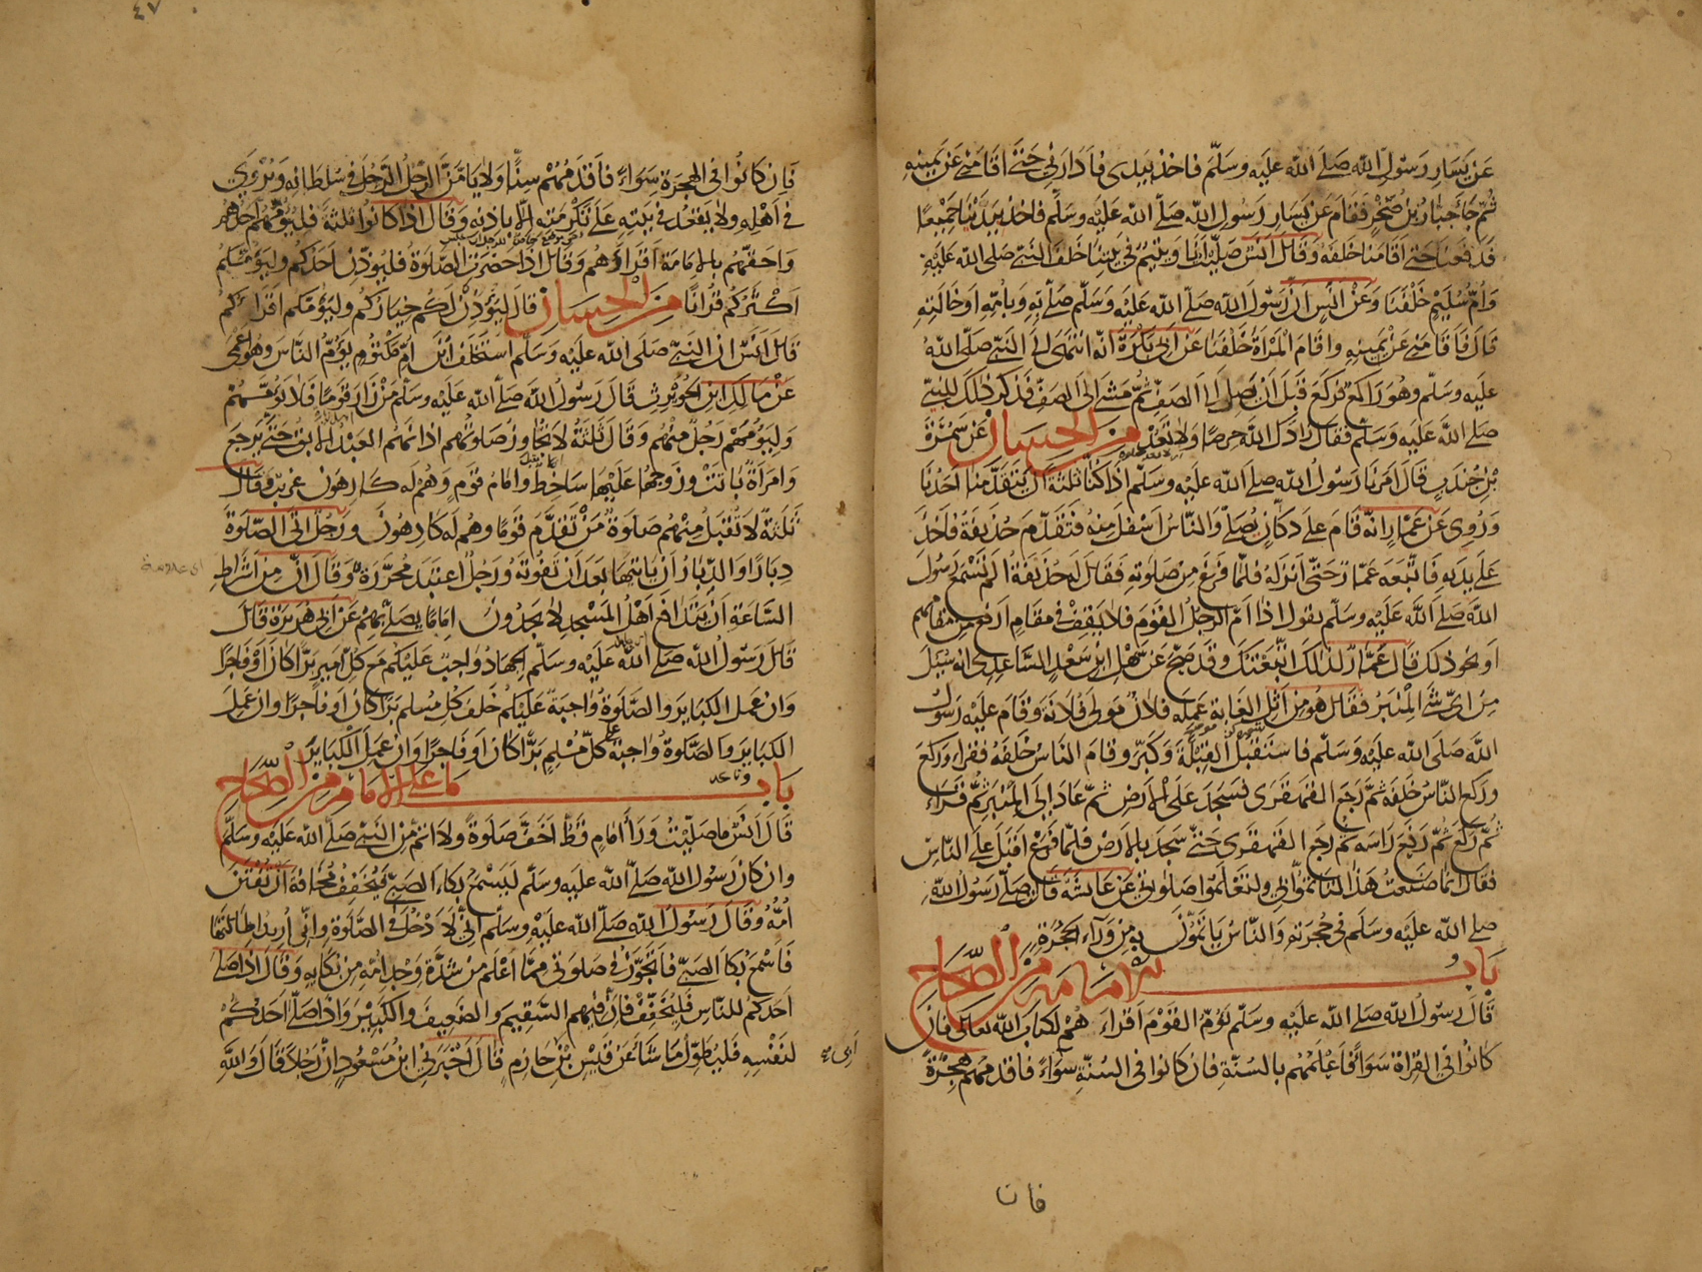 عن يسار رسول الله صلى الله عليه وسلم فاخذ بيدى فادارنى حتى اقامنى عن يمينه
ثم جا جبار بن صخر فقام عن يسار رسول الله صلى الله عليه وسلم فاخذ بيدينا جميعا
فدفعنا حتى اقامنا خلفه وقال انس صليت انا ويتيم فى بيتنا خلف النبى صلى الله عليه
وام سليم خلفنا وعن انس ان رسول الله صلى الله عليه وسلم صلى به وبامه او خالته
قال فاقامنى عن يمينه واقام المراة خلفنا عن ابى بكرة انه انتهى الى النبى صلى الله
عليه وسلم وهو راكع فركع قبل ان يصل الى الصف ثم مشى الى الصف فذكر ذلك للنبى
صلى الله عليه وسلم فقال زادك الله حرصا ولا تعد من الحسان عن سمرة
بن جندب قال امرنا رسول الله صلى الله عليه وسلم اذا كنا ثلثة ان يتقدمنا احدنا
وروى عن عمار انه قام على دكان يصلى والناس اسفل منه فتقدم حذيفة فاخذ
على يديه فاتبعه عمار حتى انزله فلما فرغ من صلوته فقال له حذيفة الم تسمع رسول
الله صلى الله عليه وسلم يقول اذا ام الرجل القوم فلا يقف فى مقام ارفع من مقامهم
او نحو ذلك قال عمار لذلك اتبعتك وقد صح عن سهل ابن سعد الساعدى انه سيل
من اى شى المنبر فقال هو من اثل الغابة عمله فلان مولى فلانة وقام عليه رسول
الله صلى الله عليه وسلم فاستقبل القبلة وكبر وقام الناس خلفه فقراء وركع
وركع الناس خلفه ثم رجع القهقرى فسجد على الارض ثم عاد الى المنبر ثم قراء
ثم ركع ثم رفع راسه ثم رجع القهقرى حتى سجد بالارض فلما فرغ اقبل على الناس
فقال انما صنعت هذا لتاتموا بى ولتعلموا صلوتى عن عائشة قال صلى رسول الله
صلى الله عليه وسلم فى حجرته والناس ياتمون به من وراء الحجرة
باب الامامة من الصحاح
قال رسول الله صلى الله عليه وسلم يوم القوم اقراءهم لكتاب الله تعالى فان
كانوا فى القراة سواء فاعلمهم بالسنة فان كانوا فى السنة سواء فاقدمهم هجرة
فان
٤٧
فان كانوا فى الهجرة سواء فاقدمهم سنا ولا يامن الرجل الرجل فى سلطانه ويروى
فى اهله ولا يقعد فى بيته على تكرمته الا باذنه وقال اذا كانوا ثلثة فليؤمهم احدهم
واحقهم بالامامة اقراءهم وقال اذا حضرت الصلوة فليوذن احدكم وليؤمكم
اكثركم قرانا من الحسان قال ليؤذن لكم خياركم وليؤمكم اقراءكم
قال انس ان النبى صلى الله عليه وسلم استخلف ابن ام مكتوم يؤم الناس وهو اعمى
عن مالك ابن الحويرث قال رسول الله صلى الله عليه وسلم من زار قوما فلا يؤمهم
وليؤمهم رجل منهم وقال ثلثة لا تجاوز صلوتهم اذانهم العبد الابق حتى يرجع
وامراة باتت وزوجها عليها ساخط وامام قوم وهم له كارهون غريب وقال
ثلثة لا تقبل منهم صلوة من تقدم قوما وهم له كارهون ورجل اتى الصلوة
دبارا والدبار ان ياتيها بعد ان تفوته ورجل اعتبد محررة وقال ان من اشراط
الساعة ان يتدافع اهل المسجد لا يجدون اماما يصلى بهم عن ابى هريرة قال
قال رسول الله صلى الله عليه وسلم الجهاد واجب عليكم مع كل امير برا كان او فاجرا
وان عمل الكباير والصلوة واجبة عليكم خلف كل مسلم برا كان او فاجرا وان عمل
الكباير والصلوة واجبة على كل مسلم برا كان او فاجرا وان عمل الكباير
باب ما على الامام من الصحاح
قال انس ما صليت وراء امام قط اخف صلوة ولا اتم من النبى صلى الله عليه وسلم
وان كان رسول الله صلى الله عليه وسلم ليسمع بكاء الصبى فيخفف مخافة ان تفتن
امه وقال رسول الله صلى الله عليه وسلم انى لادخل فى الصلوة وانى اريد اطالتها
فاسمع بكا الصبى فاتجوز فى صلوتى مما اعلم من شدة وجد امه من بكايه وقال اذا صلى
احدكم للناس فليخفف فان فيهم السقيم والضعيف والكبير واذا صلى احدكم
لنفسه فليطول ما شاء عن قيس بن حازم قال اخبرنى ابن مسعود ان رجلا قال والله